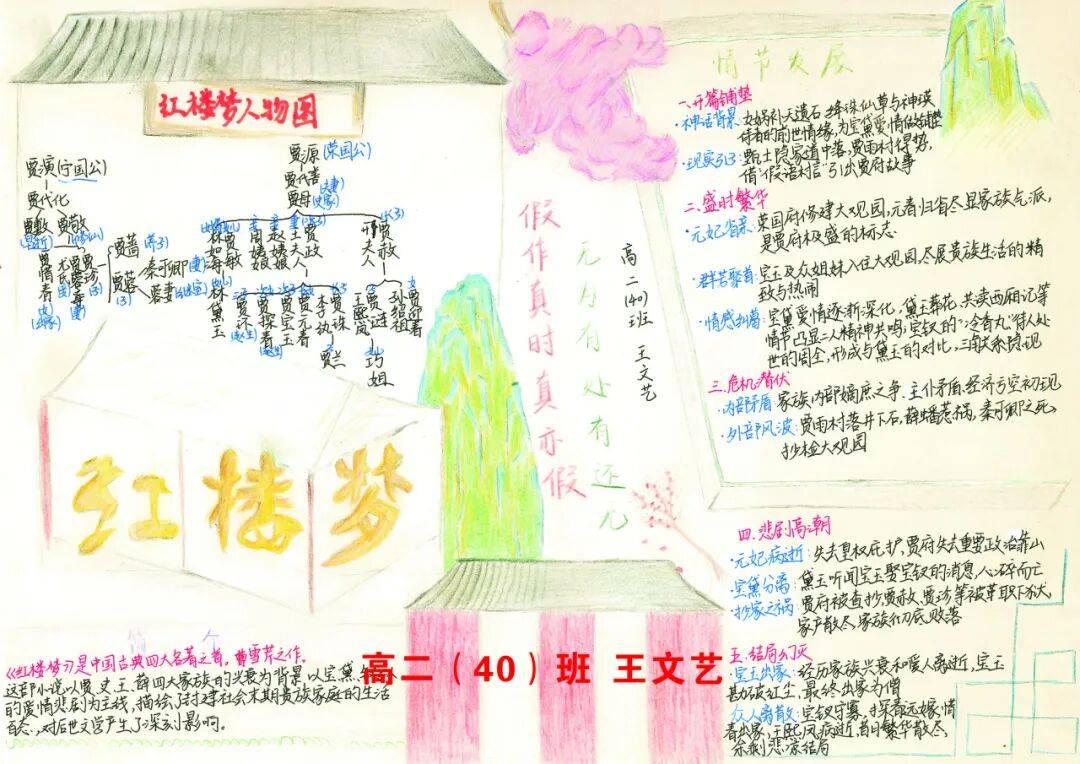 红楼梦人物图
贾源(荣国公)
贾演(宁国公)
贾代善
贾代化
贾母
贾敷 贾敬
(早逝)
贾蔷
贾蓉
秦可卿
贾惜春
尤氏
贾珍
林如海
贾敏
周姨娘
赵姨娘
王夫人
贾政
邢夫人
贾赦
林黛玉
贾环
贾探春
贾宝玉
贾元春
李纨
贾珠
王熙凤
贾琏
孙绍祖
贾迎春
贾兰
巧姐
红楼梦
《红楼梦》是中国古典四大名著之首。曹雪芹之作。
这部小说以贾、史、王、薛四大家族的兴衰为背景,以宝黛
的爱情悲剧为主线,描绘了封建社会末期贵族家庭的生活
百态,对后世文学产生了深刻影响。
假作真时真亦假
无为有处有还无
高二(40)班 王文艺
高二（40）班 王文艺
情节发展
一.开篇铺垫
·神话背景:女娲补天遗石,绛珠仙草与神瑛
侍者的前世情缘,为宝黛爱情做铺垫
·现实引子:甄士隐家道中落,贾雨村得势,
借"假语村言"引出贾府故事
二.盛时繁华
·元妃省亲:荣国府修建大观园,元春归省尽显家族气派,
是贾府极盛的标志
·群芳聚首:宝玉及众姐妹入住大观园,尽展贵族生活的精
致与热闹
·情感纠葛:宝黛爱情逐渐深化,黛玉葬花、共读西厢记等
情节凸显二人精神共鸣;宝钗的"冷香丸"待人处
世的周全,形成与黛玉的对比,三角关系隐现
三.危机潜伏
·内部矛盾:家族内部嫡庶之争、主仆矛盾、经济亏空初现
·外部风波:贾雨村落井下石,薛蟠惹祸,秦可卿之死,
抄检大观园
四.悲剧高潮
·元妃病逝:失去皇权庇护,贾府失去重要政治靠山
·宝黛分离:黛玉听闻宝玉娶宝钗的消息,心碎而亡
·抄家之祸:贾府被查抄,贾赦、贾珍等被革职下狱,
家产散尽,家族彻底败落
五.结局幻灭
宝玉出家:经历家族兴衰和爱人离逝,宝玉
勘破红尘,最终出家为僧
众人离散:宝钗守寡,探春远嫁,惜
春出家,王熙凤病逝,昔日繁华散尽,
余剩悲凉结局